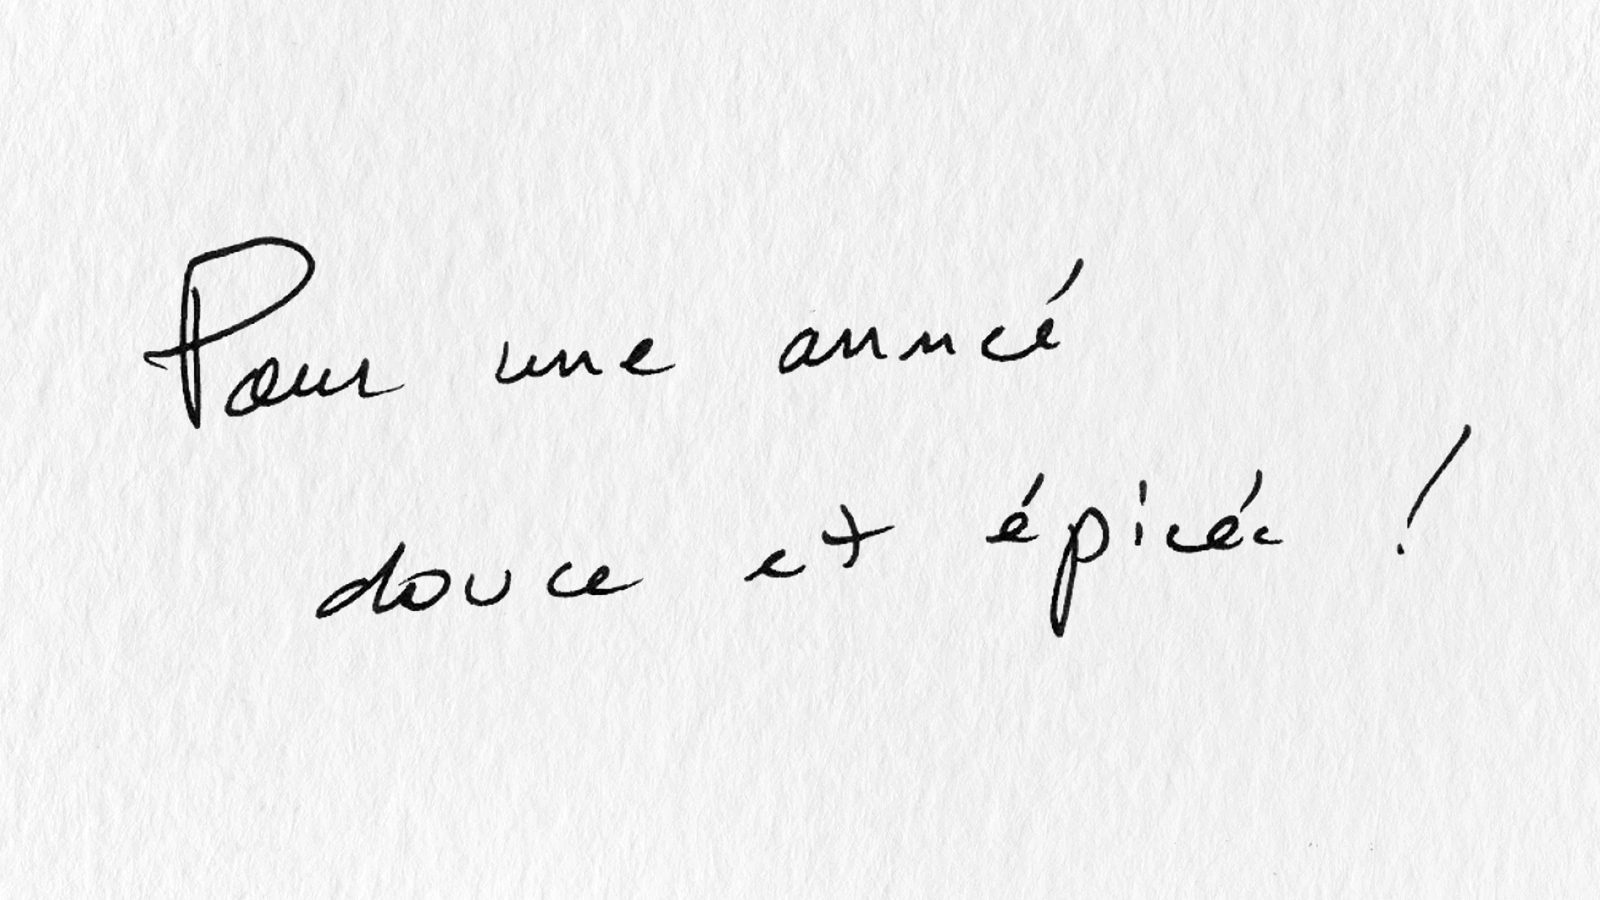 Pour une année
douce et épicée !